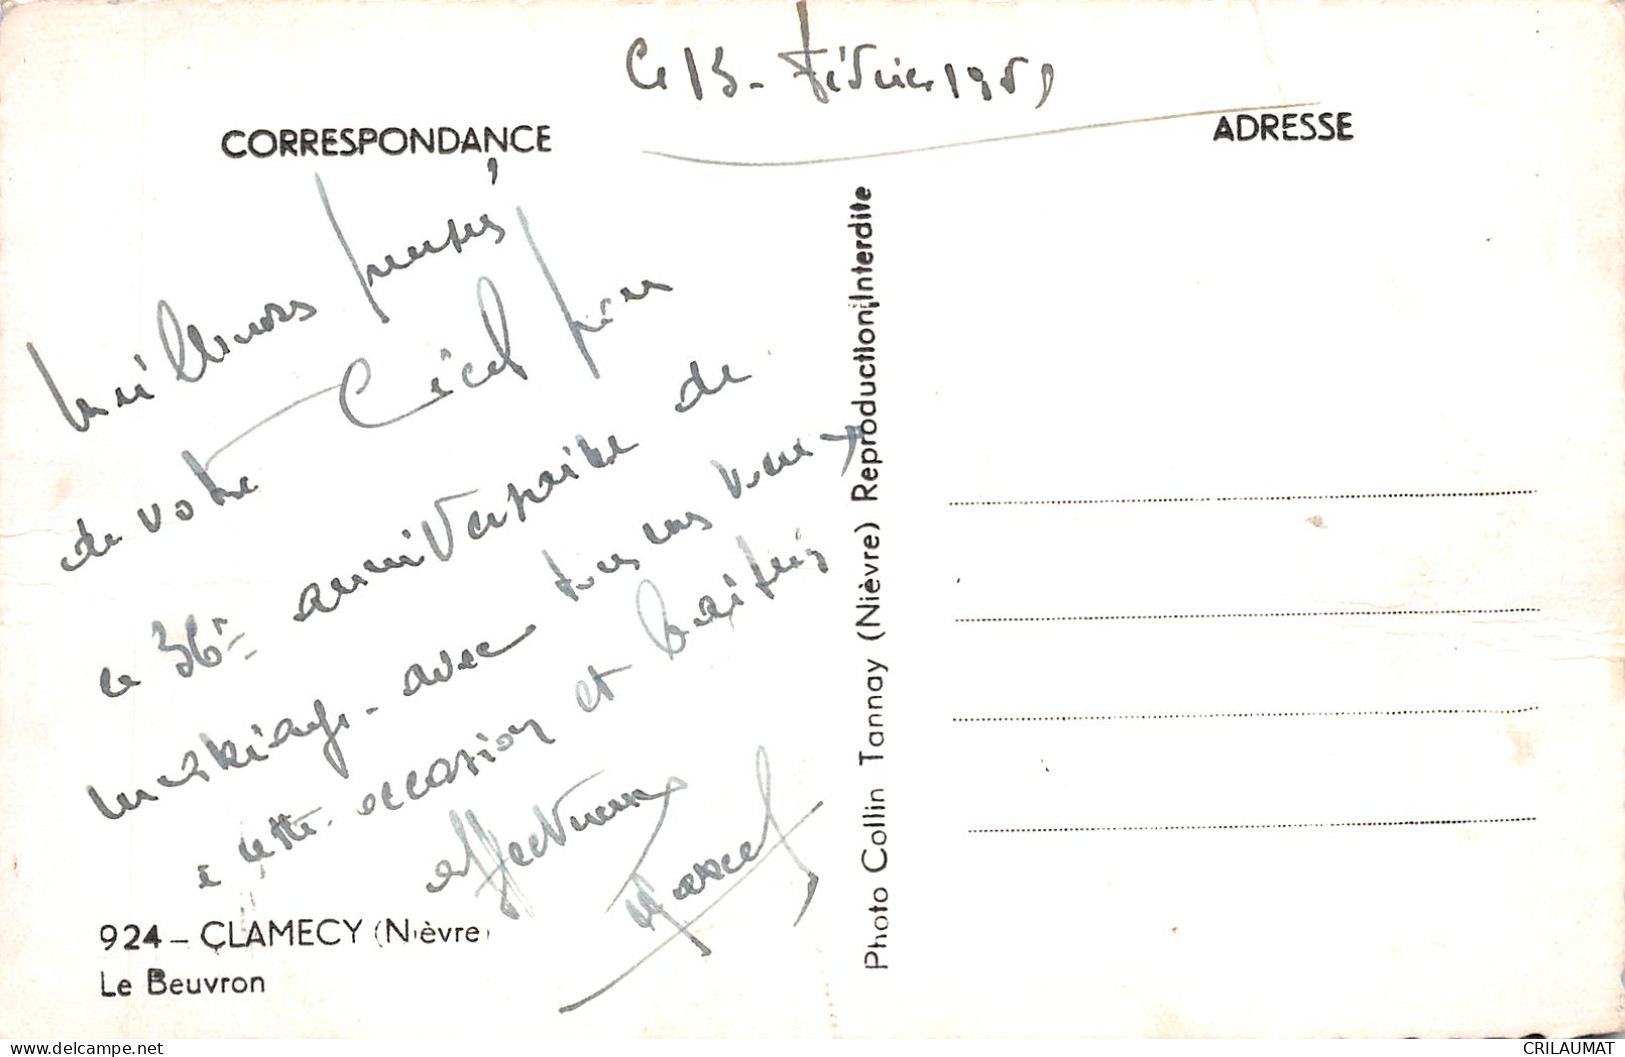 Le 13 - Février 195
CORRESPONDANCE
ADRESSE
Meilleurs pensées
de votre pour
le 36e anniversaire de
mariage - avec tous mes vœux
à cette occasion et
affectueux
Marcel
924 - CLAMECY (Nièvre)
Le Beuvron
Photo Collin Tannay (Nièvre) Reproduction Interdite
CRILAUMAT
delcampe.net